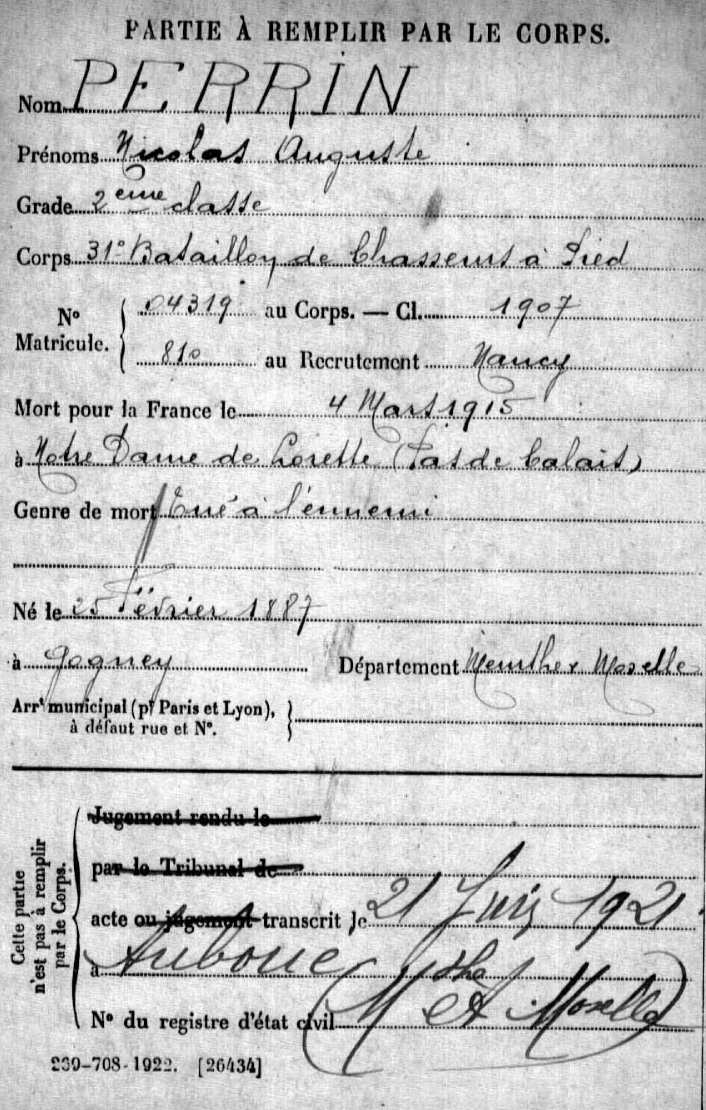 PARTIE À REMPLIR PAR LE CORPS.
Nom PERRIN
Prénoms Nicolas Auguste
Grade 2ème classe
Corps 31° Bataillon de Chasseurs à Pied
N° Matricule. 04319 au Corps. — Cl. 1907
810 au Recrutement Nancy
Mort pour la France le 4 Mars 1915
à Notre Dame de Lorette (Pas de Calais)
Genre de mort Tué à l'ennemi
Né le 25 Février 1887
à Gogney Département Meurthe & Moselle
Arrt municipal (pr Paris et Lyon),
à défaut rue et N°.
Cette partie
n'est pas à remplir
par le Corps.
Jugement rendu le
par le Tribunal de
acte ou jugement transcrit le 21 Juin 1921
à Auboué
(M the et Moselle)
N° du registre d'état civil
239-708-1922. [26434]